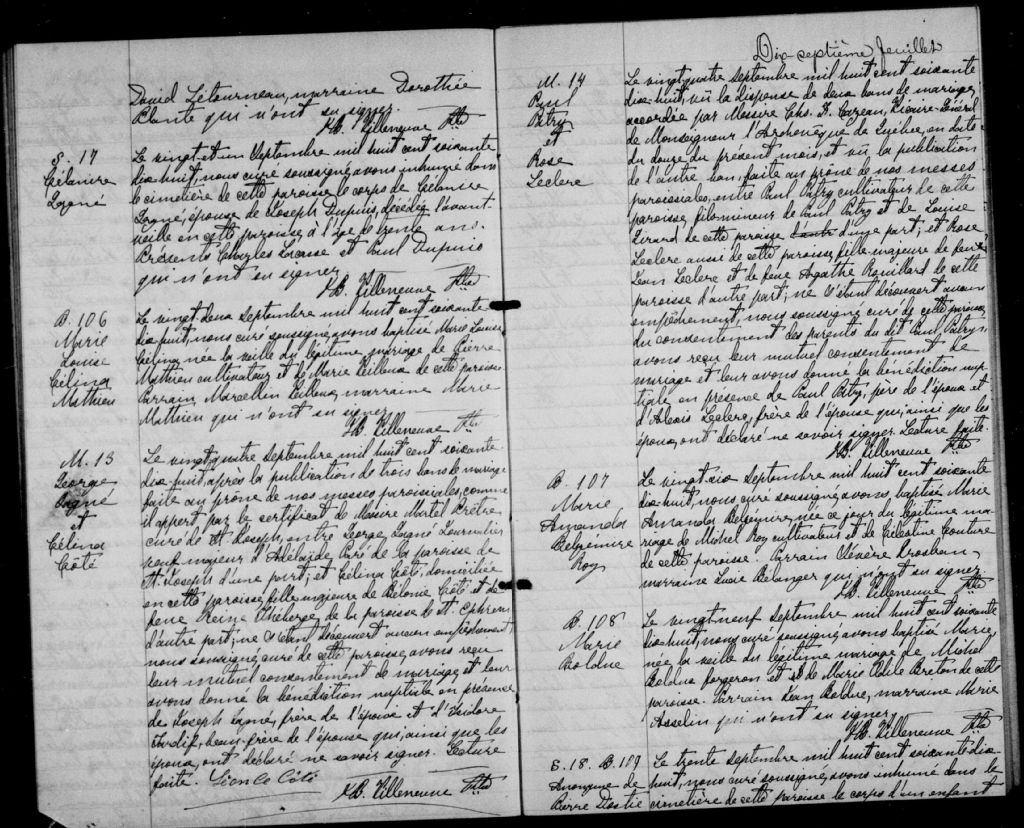 David Létourneau, marraine Dorothée
Plante qui n'ont su signer.
J.B. Villeneuve Ptre
S. 17
Célanire
Gagné
Le vingt-et un Septembre mil huit cent soixante
dix-huit, nous curé soussigné, avons inhumé dans
le cimetière de cette paroisse le corps de Célanire
Gagné, épouse de Joseph Dupuis, décédée l'avant
veille en cette paroisse, à l'age de trente ans.
Présents Charles Lacasse et Paul Dupuis
qui n'ont su signer.
J.B. Villeneuve Ptre
B. 106
Marie
Louise
Célina
Mathieu
Le vingt deux septembre mil huit cent soixante
dix-huit, nous curé soussigné, avons baptisé Marie Louise
Célina, née la veille du légitime mariage de Pierre
Mathieu cultivateur et de Marie Leblanc de cette paroisse
Parrain Marcellin Leblanc, marraine Marie
Mathieu qui n'ont su signer.
J.B. Villeneuve Ptre
M. 13
George
Gagné
et
Célina
Côté
Le vingt-quatre Septembre mil huit cent soixante
dix-huit, après la publication de trois bans de mariage
faite au prône de nos messes paroissiales, comme
il appert par le certificat de Messire Martel Prêtre
curé de St Joseph, entre George Gagné Journalier
veuf majeur d'Adelaïde Paré de la paroisse de
St Joseph d'une part; et Célina Côté, domiciliée
en cette paroisse, fille majeure de Belonie Côté et de
feue Reine Théberge, de la paroisse de St. Ephrem
d'autre part; ne s'étant découvert aucun empêchement,
nous soussigné, curé de cette paroisse, avons reçu
leur mutuel consentement de mariage et leur
avons donné la bénédiction nuptiale en présence
de Joseph Gagné, frère de l'époux et d'Isidore
Tardif, beau-frère de l'épouse qui, ainsi que les
époux, ont déclaré ne savoir signer. Lecture
faite. Léon Côté
J.B. Villeneuve Ptre
Dix-septième feuillet
M. 14
Paul
Patry
et
Rose
Leclerc
Le vingt-quatre Septembre mil huit cent soixante
dix-huit, vû la dispense de deux bans de mariage,
accordée par Messire Chs. F. Cazeau, Vicaire-Général
de Monseigneur l'Archevêque de Québec, en date
du douze du présent mois, et vû la publication
de l'autre ban, faite au prône de nos messes
paroissiales, entre Paul Patry cultivateur de cette
paroisse, fils mineur de Paul Patry et de Louise
Girard de cette paroisse d'une part; et Rose
Leclerc aussi de cette paroisse, fille majeure de feu
Jean Leclerc et de feue Agathe Rouillard de cette
paroisse d'autre part; ne s'étant découvert aucun
empêchement, nous soussigné, curé de cette paroisse,
du consentement des parents du dit Paul Patry,
avons reçu leur mutuel consentement de
mariage et leur avons donné la bénédiction nup
tiale en présence de Paul Patry, père de l'époux et
d'Alexis Leclerc, frère de l'épouse qui, ainsi que les
époux, ont déclaré ne savoir signer. Lecture faite.
J.B. Villeneuve Ptre
B. 107
Marie
Amanda
Belzémire
Roy
Le vingt-six septembre mil huit cent soixante
dix-huit, nous curé soussigné, avons baptisé Marie
Amanda Belzémire, née ce jour du légitime ma
riage de Michel Roy cultivateur et de Célestine Couture
de cette paroisse. Parrain Sévère
marraine Lucie Belanger qui n'ont su signer.
J.B. Villeneuve Ptre
B. 108
Marie
Bolduc
Le vingt-neuf septembre mil huit cent soixante
dix-huit, nous curé soussigné, avons baptisé Marie,
née la veille du légitime mariage de Michel
Bolduc forgeron et de Marie Odile Breton de cette
paroisse. Parrain Jean Bolduc, marraine Marie
Asselin qui n'ont su signer.
J.B. Villeneuve Ptre
S. 18. B. 109
Anonyme de
Pierre Dostie
Le trente Septembre mil huit cent soixante-dix-
huit, nous curé soussigné, avons inhumé dans le
cimetière de cette paroisse le corps d'un enfant